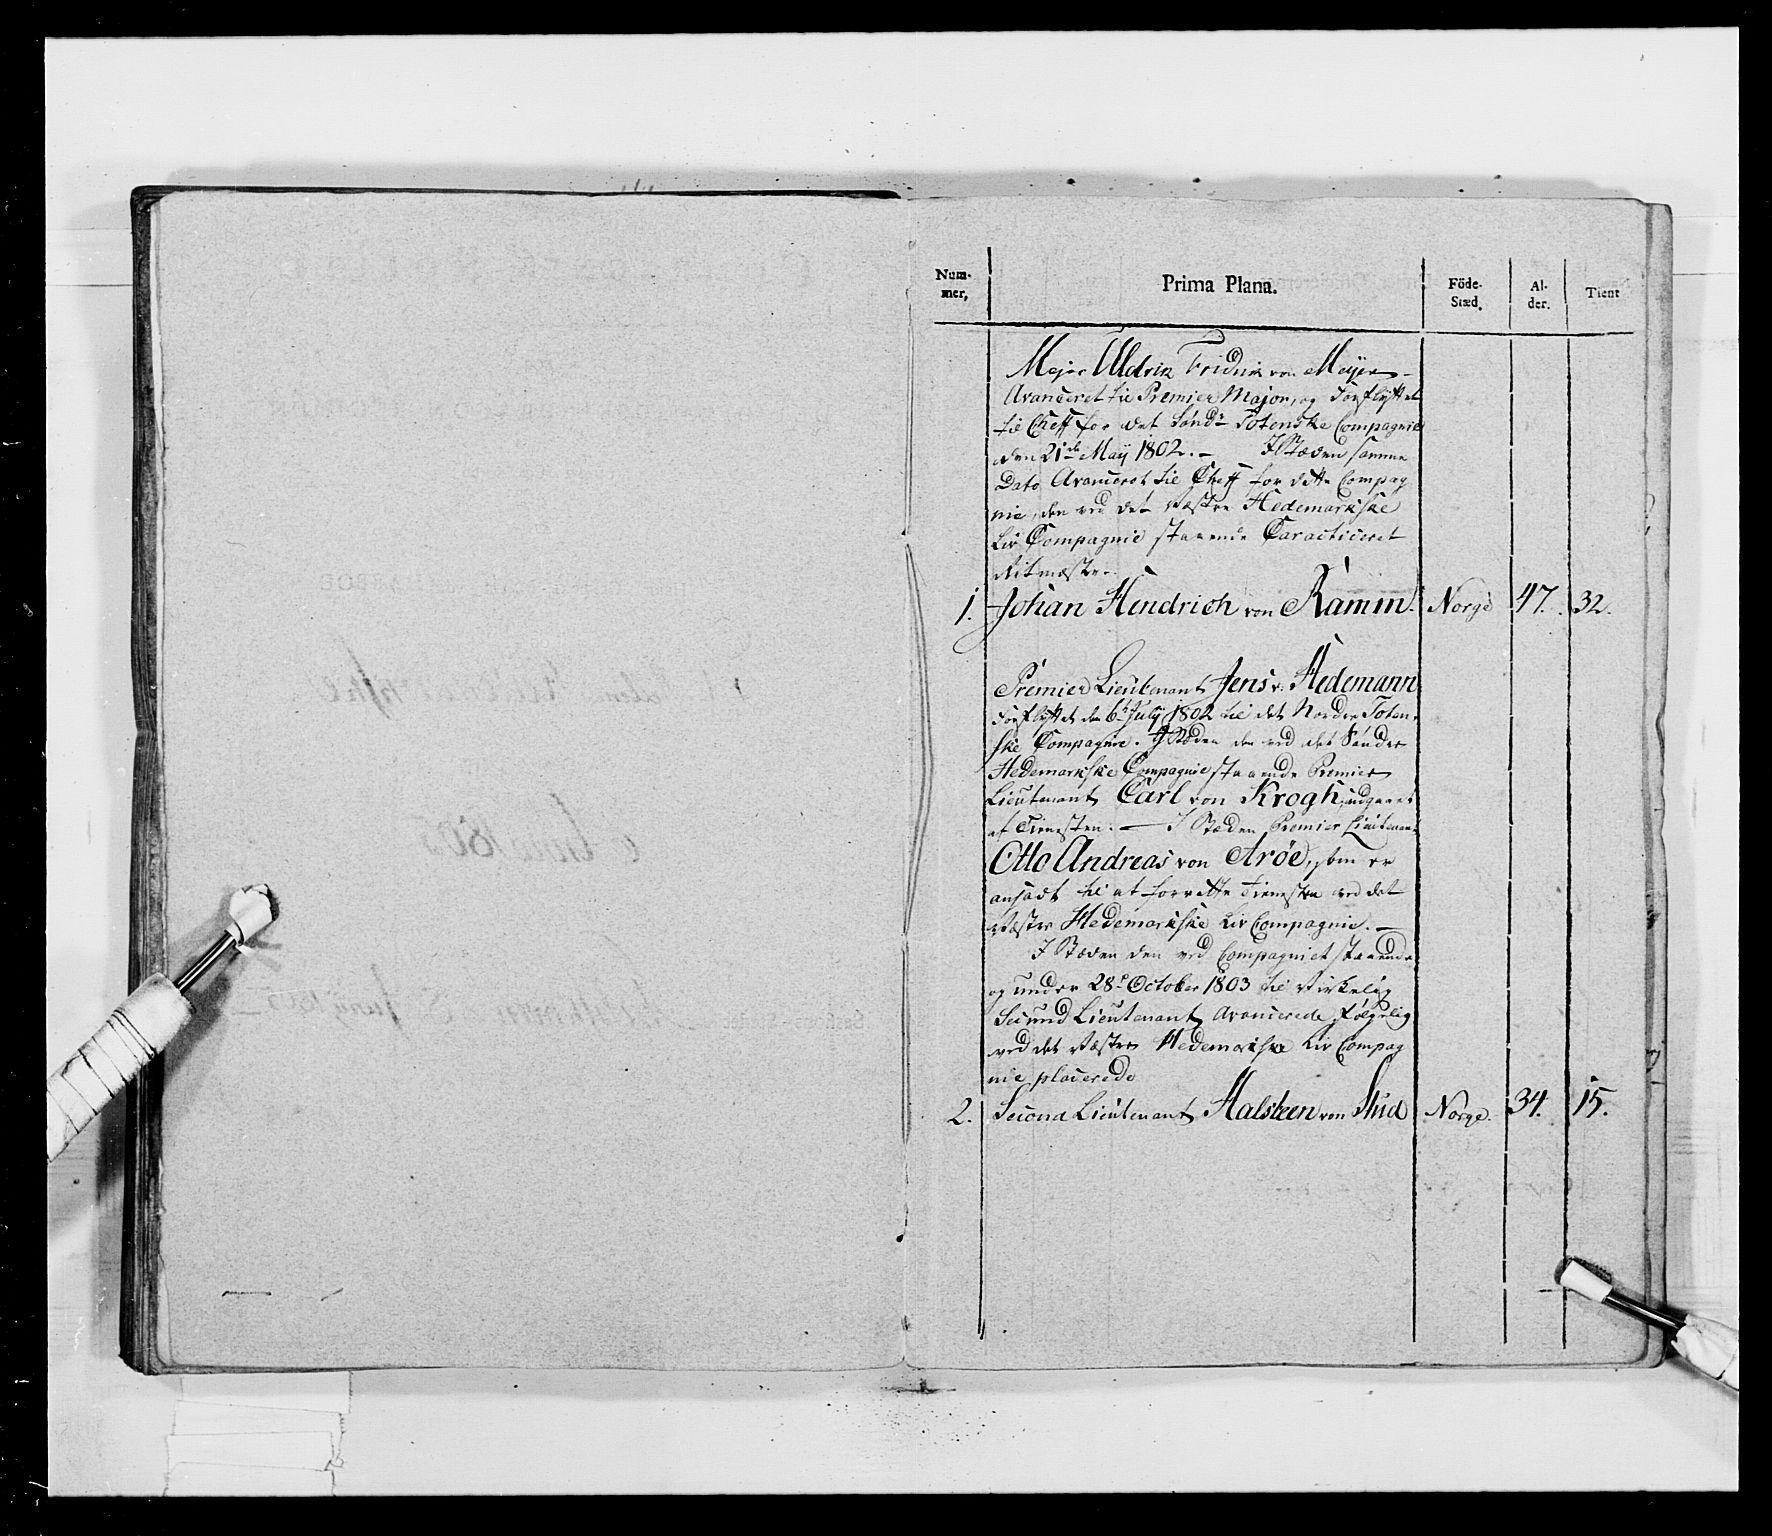 Num-
mer,
Prima Plana.
Föde-
Stæd.
Al-
der.
Tient
Major Uldrik Fridrik von Meijer
Avanceret til Premier Major, og Forflyttet
til Cheff for det Sönd. Totenske Compagnie
den 21de Maij 1802. — I Stæden samme
Dato Avanceret til Cheff for dette Compag
nie, den ved det Vestre Hedemarkske
Liv Compagnie staaende Caracticeret
Ritmester
1. Johan Hendrich von Ramm. Norge 47. 32.
Premier Lieutenant Jens v. Hedemann
Forflyttet den 6t July 1802 til det Nordre Toten-
ske Compagnie. I Stæden den ved det Söndre
Hedemarkske Compagnie staaende Premier
Lieutenant Carl von Krogh, udgaaet
af Tienesten. — I Stæden Premier Lieutenant
Otto Andreas von Aröe, som er
ansadt til at forrette Tieneste ved det
Vestre Hedemarkske Liv Compagnie. —
I Stæden den ved Compagniet staaende
og under 28de October 1803 til Virkelig
Secund Lieutenant Avancerede, Fölgelig
ved det Vestre Hedemarkske Liv Compag
nie placerede
2. Second Lieutenant Halsteen von Hud Norge. 34. 15.